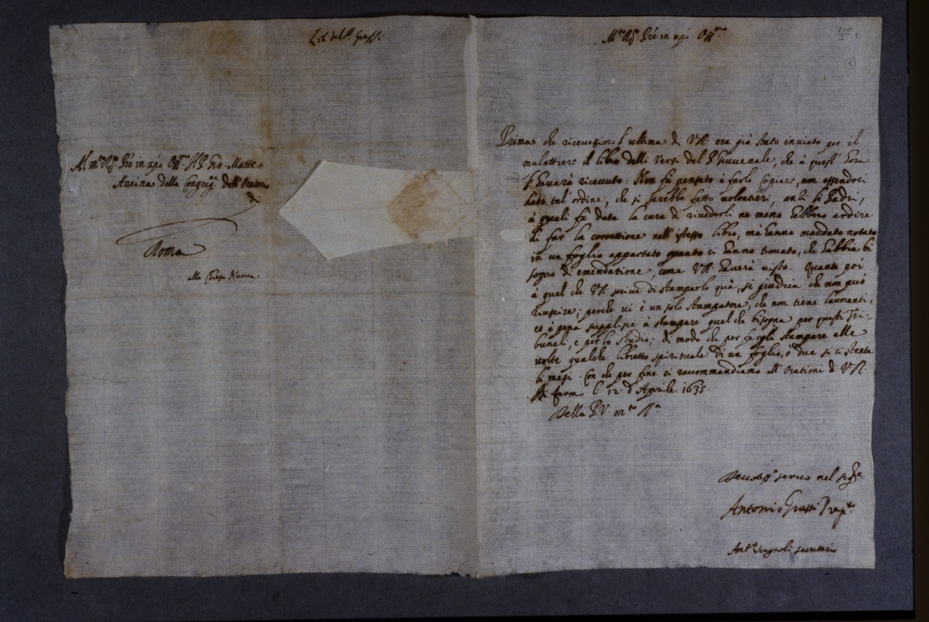 Lib del P. Grassi
Al m.to R.do P.re in xpo Oss. Il P. Gio. Matteo
Ancina della Congreg.ne dell'Oratorio
di
Roma
alla Chiesa Nuova
M.to R.do P.re in xpo Oss.mo
Prima che ricevessimo l'ultima di V.R. era già stato inviato per il
mulattiere il libro delli versi del P. Giuvenale, che à quest'hora
si haverà ricevuto: Non fù pensato à farlo copiare, non essendoci
dato tal ordine, che si sarebbe fatto volontieri, anzi li Padri,
à quali fù data la cura di rivederli ne meno hebbero ardire
di far la correttione nell'istesso libro, mà hanno mandato notato
in un foglio appartato quanto ci hanno trovato, che habbia bi
sogno di emendatione, come V.R. haverà visto. Quanto poi
à quel che V.R. scrive di stamparli quà, si giudica che non può
riuscire; perche vi è un solo stampatore, che non tiene lavoranti,
et à pena supplisce à stampare quel che bisogna per questi Tri-
bunali, e per lo studio; di modo che per farvoli stampare alle
volte qualche libretto spirituale di un foglio, ò due si ci stenta
li mesi. Con che per fine ci raccommandiamo all'oratione di V.R.
Di Fermo li 12 d'Aprile 1635.
Della P.V. m.to R.da
servo nel sig.re
Antonio Grassi Prep.to
Ant.o secretario